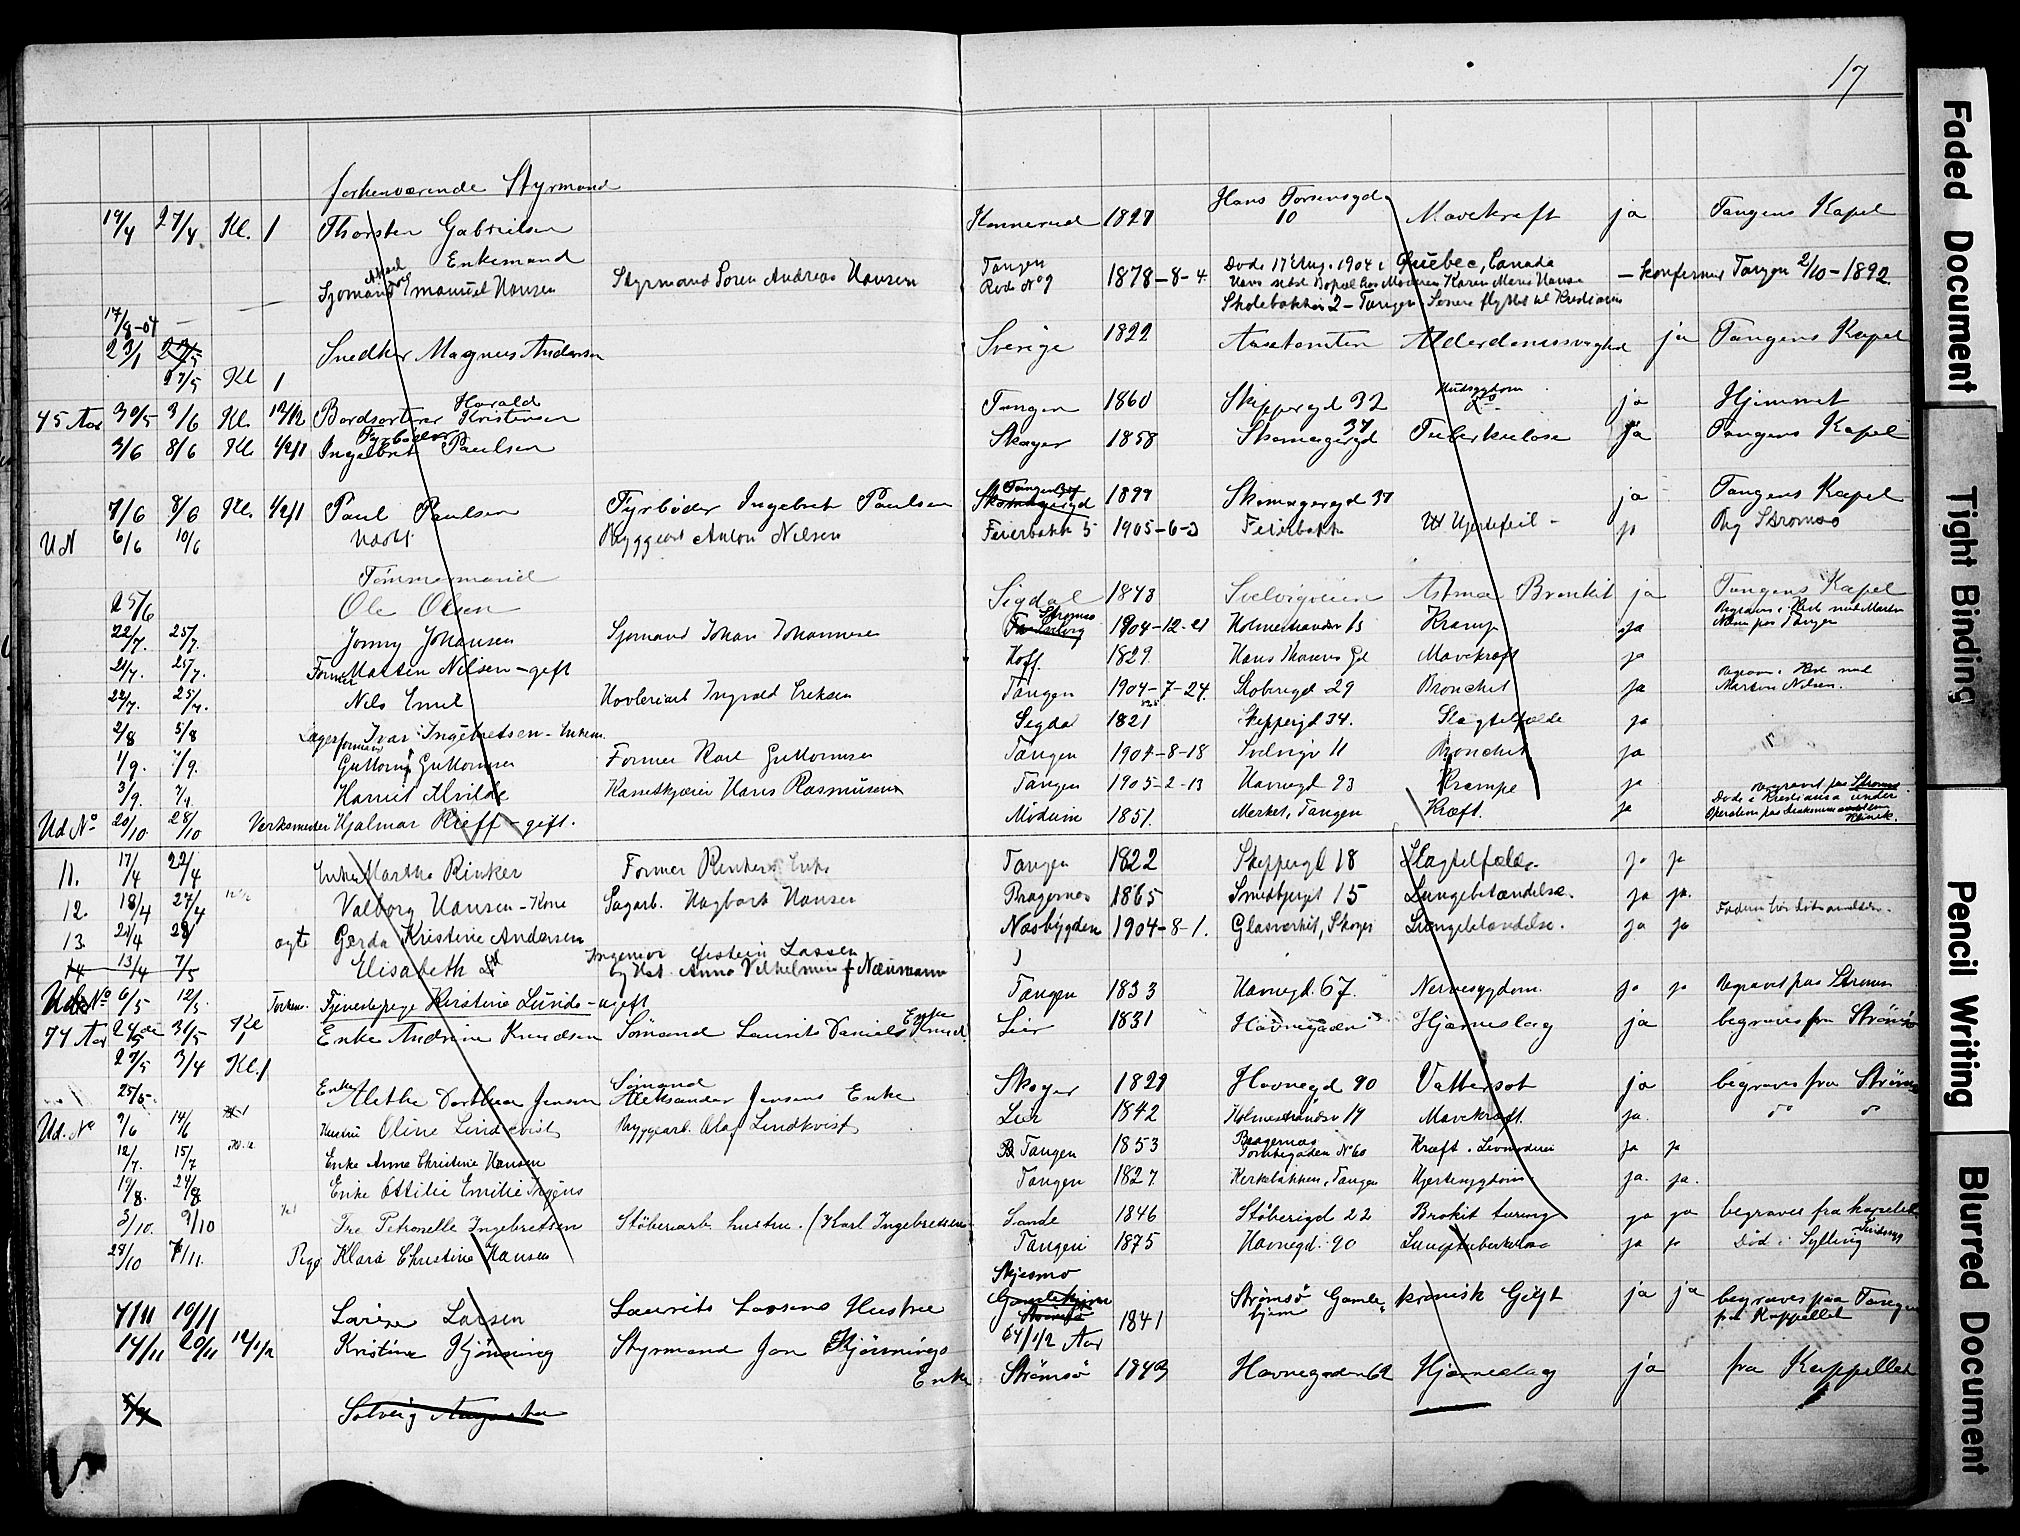 17
forhenværende Styrmand
19/4 27/4 Kl. 1 Thorsten Gabrielsen Konnerud 1827 Hans Torsensgd 10 Mavekræft ja Tangens Kapel
Enkemand
Sjømand Emanuel Hansen Styrmand Søren Andreas Hansen Tangen Rode No 9 1878-8-4 Døde 17 Aug. 1904 i Quebec, Canada - Konfirmer Tangen 2/10-1892
Hans sidste Bopæl hos Moderen Karen Marie Hansen
Skolebakken 2 - Tangen. Senere flyttet til Kristiania
17/8-04
23/1 Snedker Magnus Andersen Sverige 1822 Alderdomssvaghed ja Tangens Kapel
27/5 Kl 1
Harald Hudsygdom
45 Aar 30/5 3/6 Kl. 12 1/2 Bordsorterer Kristensen Tangen 1860 Skippergd 32 ja Hjemmet
Fyrbøder 37
3/6 8/6 Kl 1/2 1 Ingebret Paulsen Skoger 1858 Skomagergd Tuberkulose ja Tangens Kapel
7/6 8/6 Kl. 1/2 1 Paul Paulsen Fyrbøder Ingebret Paulsen Skomagergd 1899 Skomagergd 37 ja Tangens Kapel
Ud N 6/6 10/6 Udøbt Bryggearb Anton Nilsen Feierbakk 5 1905-6-3 Feierbakk Hjertefeil - ja Beg Strømsø
Tømmermand
25/6 Ole Olsen Sigdal 1843 Svelvigveien Astma Bronkit ja Tangens Kapel
22/7. 25/7. Jonny Johansen Sjømand Johan Johannesen Strømsø 1904-12-21 Holmestrandsv 15 Krampe ja Begraves i Kiste med Marten Nilsen paa Tangen
21/7. 25/7. Former Marten Nilsen - gift Hoff. 1829. Hans Hansens Gd Mavekræft ja
22/7. 25/7. Nils Emil Høvleriarb Ingvald Eriksen Tangen 1904-7-24. Støberigd 29 Bronchit ja Begraves i Kiste med Marten Nilsen.
2/8 5/8 Lagerformand Ivar Ingebretsen - Enkem. Sigdal 1821 Skippergd 34. Slagtilfælde ja
1/9. 7/9. Guttorm Guttormsen Former Karl Guttormsen Tangen 1904-8-18 Svelvigv 11 Bronchit ja
3/9. 7/9. Harriet Alvilde Kassekjører Hans Rasmussen Tangen 1905-2-13 Havnegd 93 Krampe ja
Ud No 20/10 28/10 Verksmester Hjalmar Rieff - gift. Modum 1851. Merket, Tangen Kræft. ja begravet paa Strømsø
Døde i Kristiania under
Operation paa
Klinik.
11. 17/4 22/4 Enke Marthe Rinker Former Rinkers Enke Tangen 1822 Skippergd 18 Slagtilfælde. ja ja
12. 18/4 27/4 Valborg Hansen - Kone Sagarb. Hagbart Hansen Bragernes 1865 Smedbjerget 15 Lungebetændelse. ja ja.
13. 21/4 ægte Gerda Kristine Andersen Næsbygden 1904-8-1. Glasverket, Skoger Lungebetændelse. ja ja
14 13/4 7/5 Elisabeth Ingeniør Øistein Lassen
og Hst. Anna Vilhelmine f Neumann
Ud No 6/5 12/5 Forhenv. Tjenestepige Kirstine Lunde - ugift Tangen 1833 Havnegd. 67. Nervesygdom. ja ja begravet paa Strømsø
74 Aar 24de/5 31/5 Kl 1 Enke Andrine Knudsen Sømand Laurits Daniels Knuds. Enke Lier 1831 Havnegaden Hjerneslag ja begraves fra Strømsø
27/5 3/4 Kl. 1
25/5 Enke Alethe Dorthea Jensen Sømand Aleksander Jensens Enke Skoger 1829 Havnegd 90 Vattersot ja begraves fra Strømsø
Ud. No 9/6 14/6 Hustru Oline Lindkvist Bryggearb. Olaf Lindkvist Lier 1842 Holmestrandsv 14 Mavekræft ja. do do
12/7. 15/7 Enke Anne Christine Hansen Tangen 1853 Bragernes Tomtegaden No 60 Kræft i Livmoderen ja ja
19/8. 24/8 Enke Ottilie Emilie Trygens Tangen 1827 Kirkebakken, Tangen Hjertesygdom. ja. ja.
3/10. 9/10 Fre Petronelle Ingebretsen Støberiarb. hustru. (Karl Ingebretsen. Sande 1846 Støberigd 22 Bronkit turing ja ja begraves fra kapellet
28/10 7/11. Pige Klara Christine Hansen Tangen 1875 Havnegd. 90 Lungetuberkulose ja ja Død i Sylling
Skjesmo
7/11 10/11 Larine Larsen Laurits Larsens Hustru Gamlehjem 1841 Strømsø Gamlehjem kronisk Gigt ja ja begraves paa Tangen fra Kappellet
64 1/2 Aar
14/11 20/11 12 1/2 Kristine Kjønning Styrmand Jon Kjønnings Enke Strømsø 1843 Havnegaden 62 Hjerneslag ja fra Kappellet
Solveig Augusta
Faded Document
Tight Binding
Pencil Writing
Blurred Document